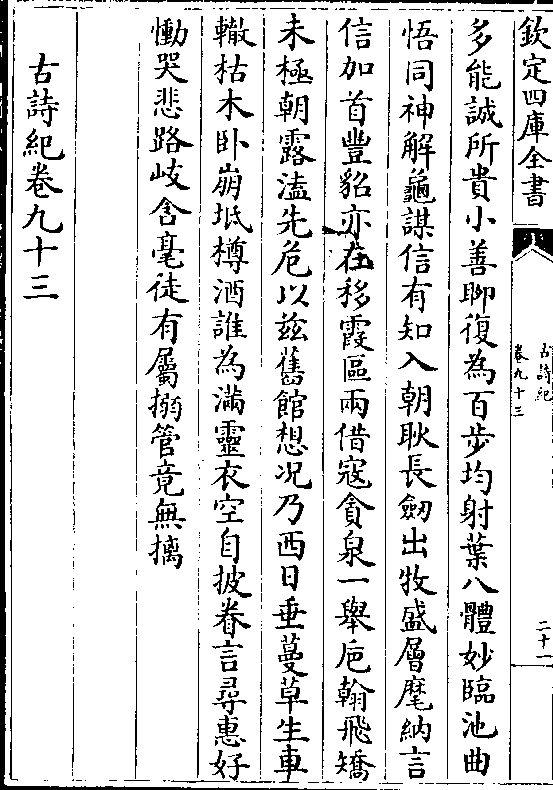 欽定四庫全書
古詩紀
卷九十三
二十一
多能誠所貴小善聊復為百步均射葉八體妙臨池曲
悟同神解龜謀信有知入朝耿長劒出牧盛層麾納言
信加首豐貂亦在移霞區兩借寇貪泉一舉巵翰飛矯
未極朝露溘先危以兹舊館想况乃西日垂蔓草生車
轍枯木卧崩坻樽酒誰為滿靈衣空自披眷言尋惠好
慟哭悲路岐含毫徒有屬搦管竟無摛
古詩紀卷九十三